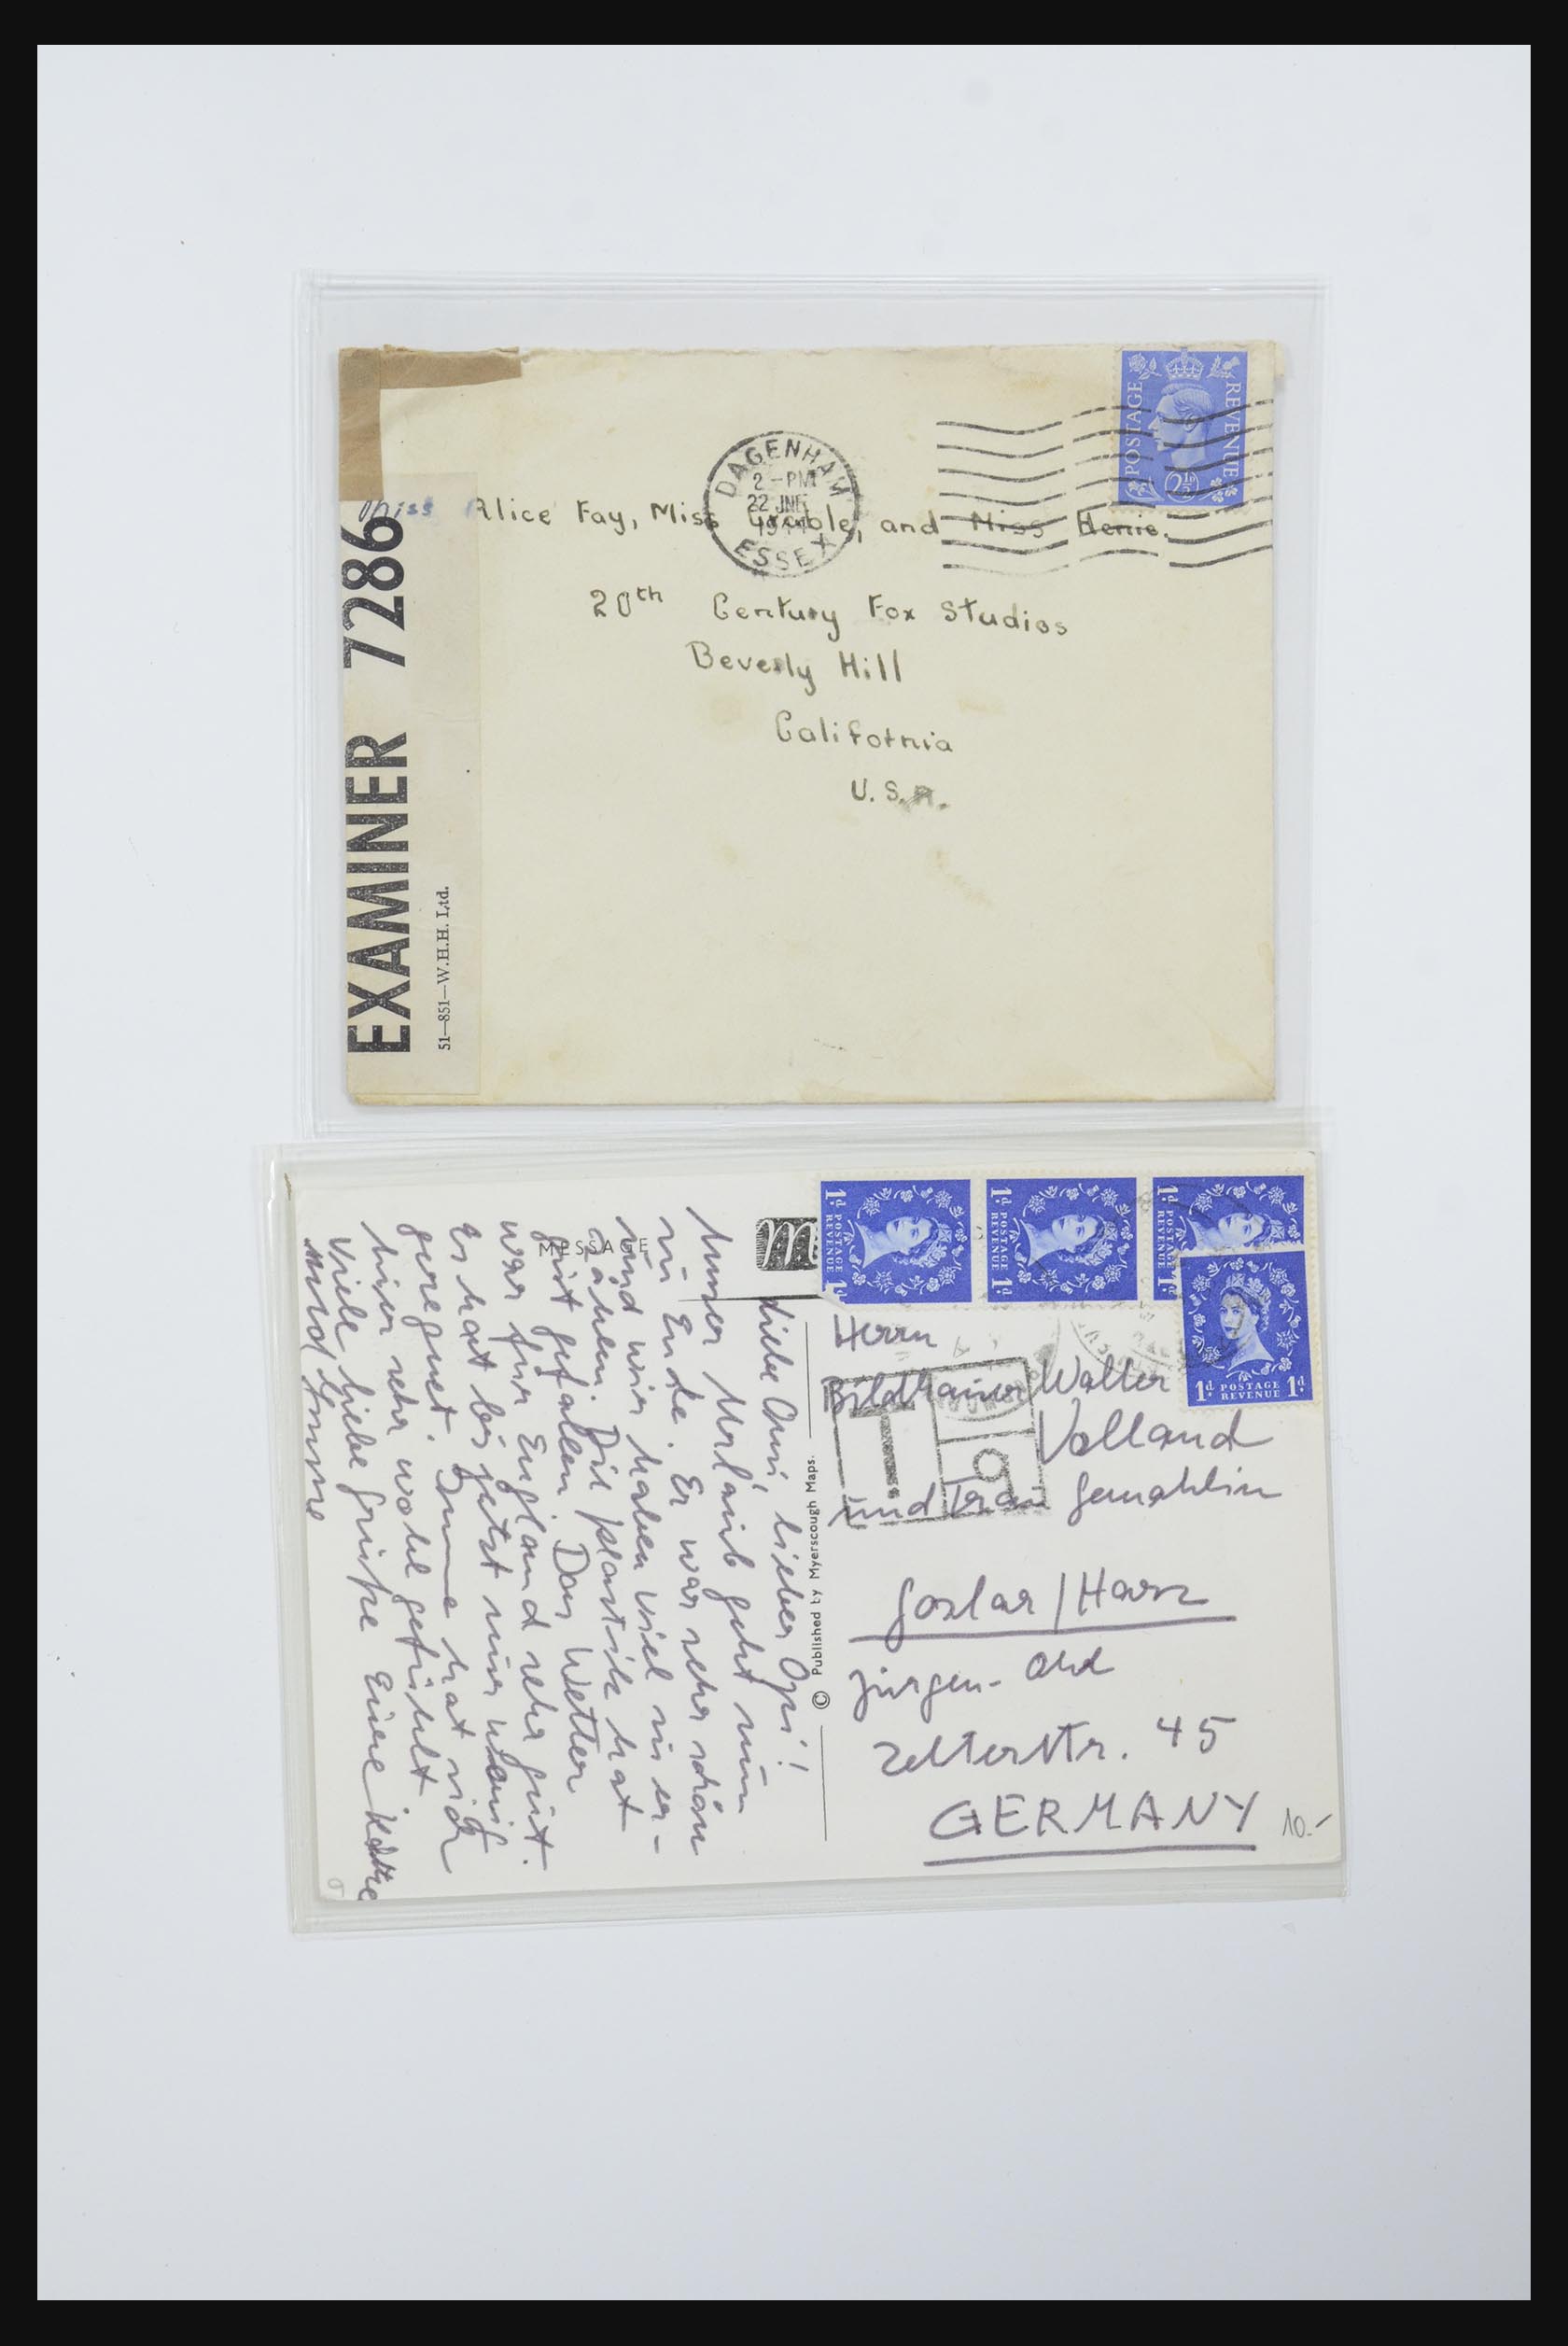 POSTAGE REVENUE
2½D
DAGENHAM
2-PM
22 JNE
ESSEX
Miss Alice Fay, Miss Grable, and Miss Henie.
20th Century Fox Studios
Beverly Hill
California
U.S.A.
EXAMINER 7286
51—851—W.H.H. Ltd.
1d POSTAGE REVENUE 1d
1d POSTAGE REVENUE 1d
1d POSTAGE 1d
1d POSTAGE REVENUE 1d
MESSAGE
Liebe Omi, lieber Opi!
Unser Urlaub geht nun
zu Ende. Er war sehr schön
und wir haben viel zu er-
zählen. Die plastik hat
gut gefallen. Das Wetter
war für England sehr gut.
Es hat bis jetzt nur wenig
geregnet. Imme hat sich
hier sehr wohl gefühlt
Viele liebe Grüße Eure Käthe
und Imme
© Published by Myerscough Maps.
Herrn
Bildhauer Walter
Volland
und Frau Gemahlin
T
Goslar/Harz
Jürgen-Ohl
Zelterstr. 45
GERMANY
10.-